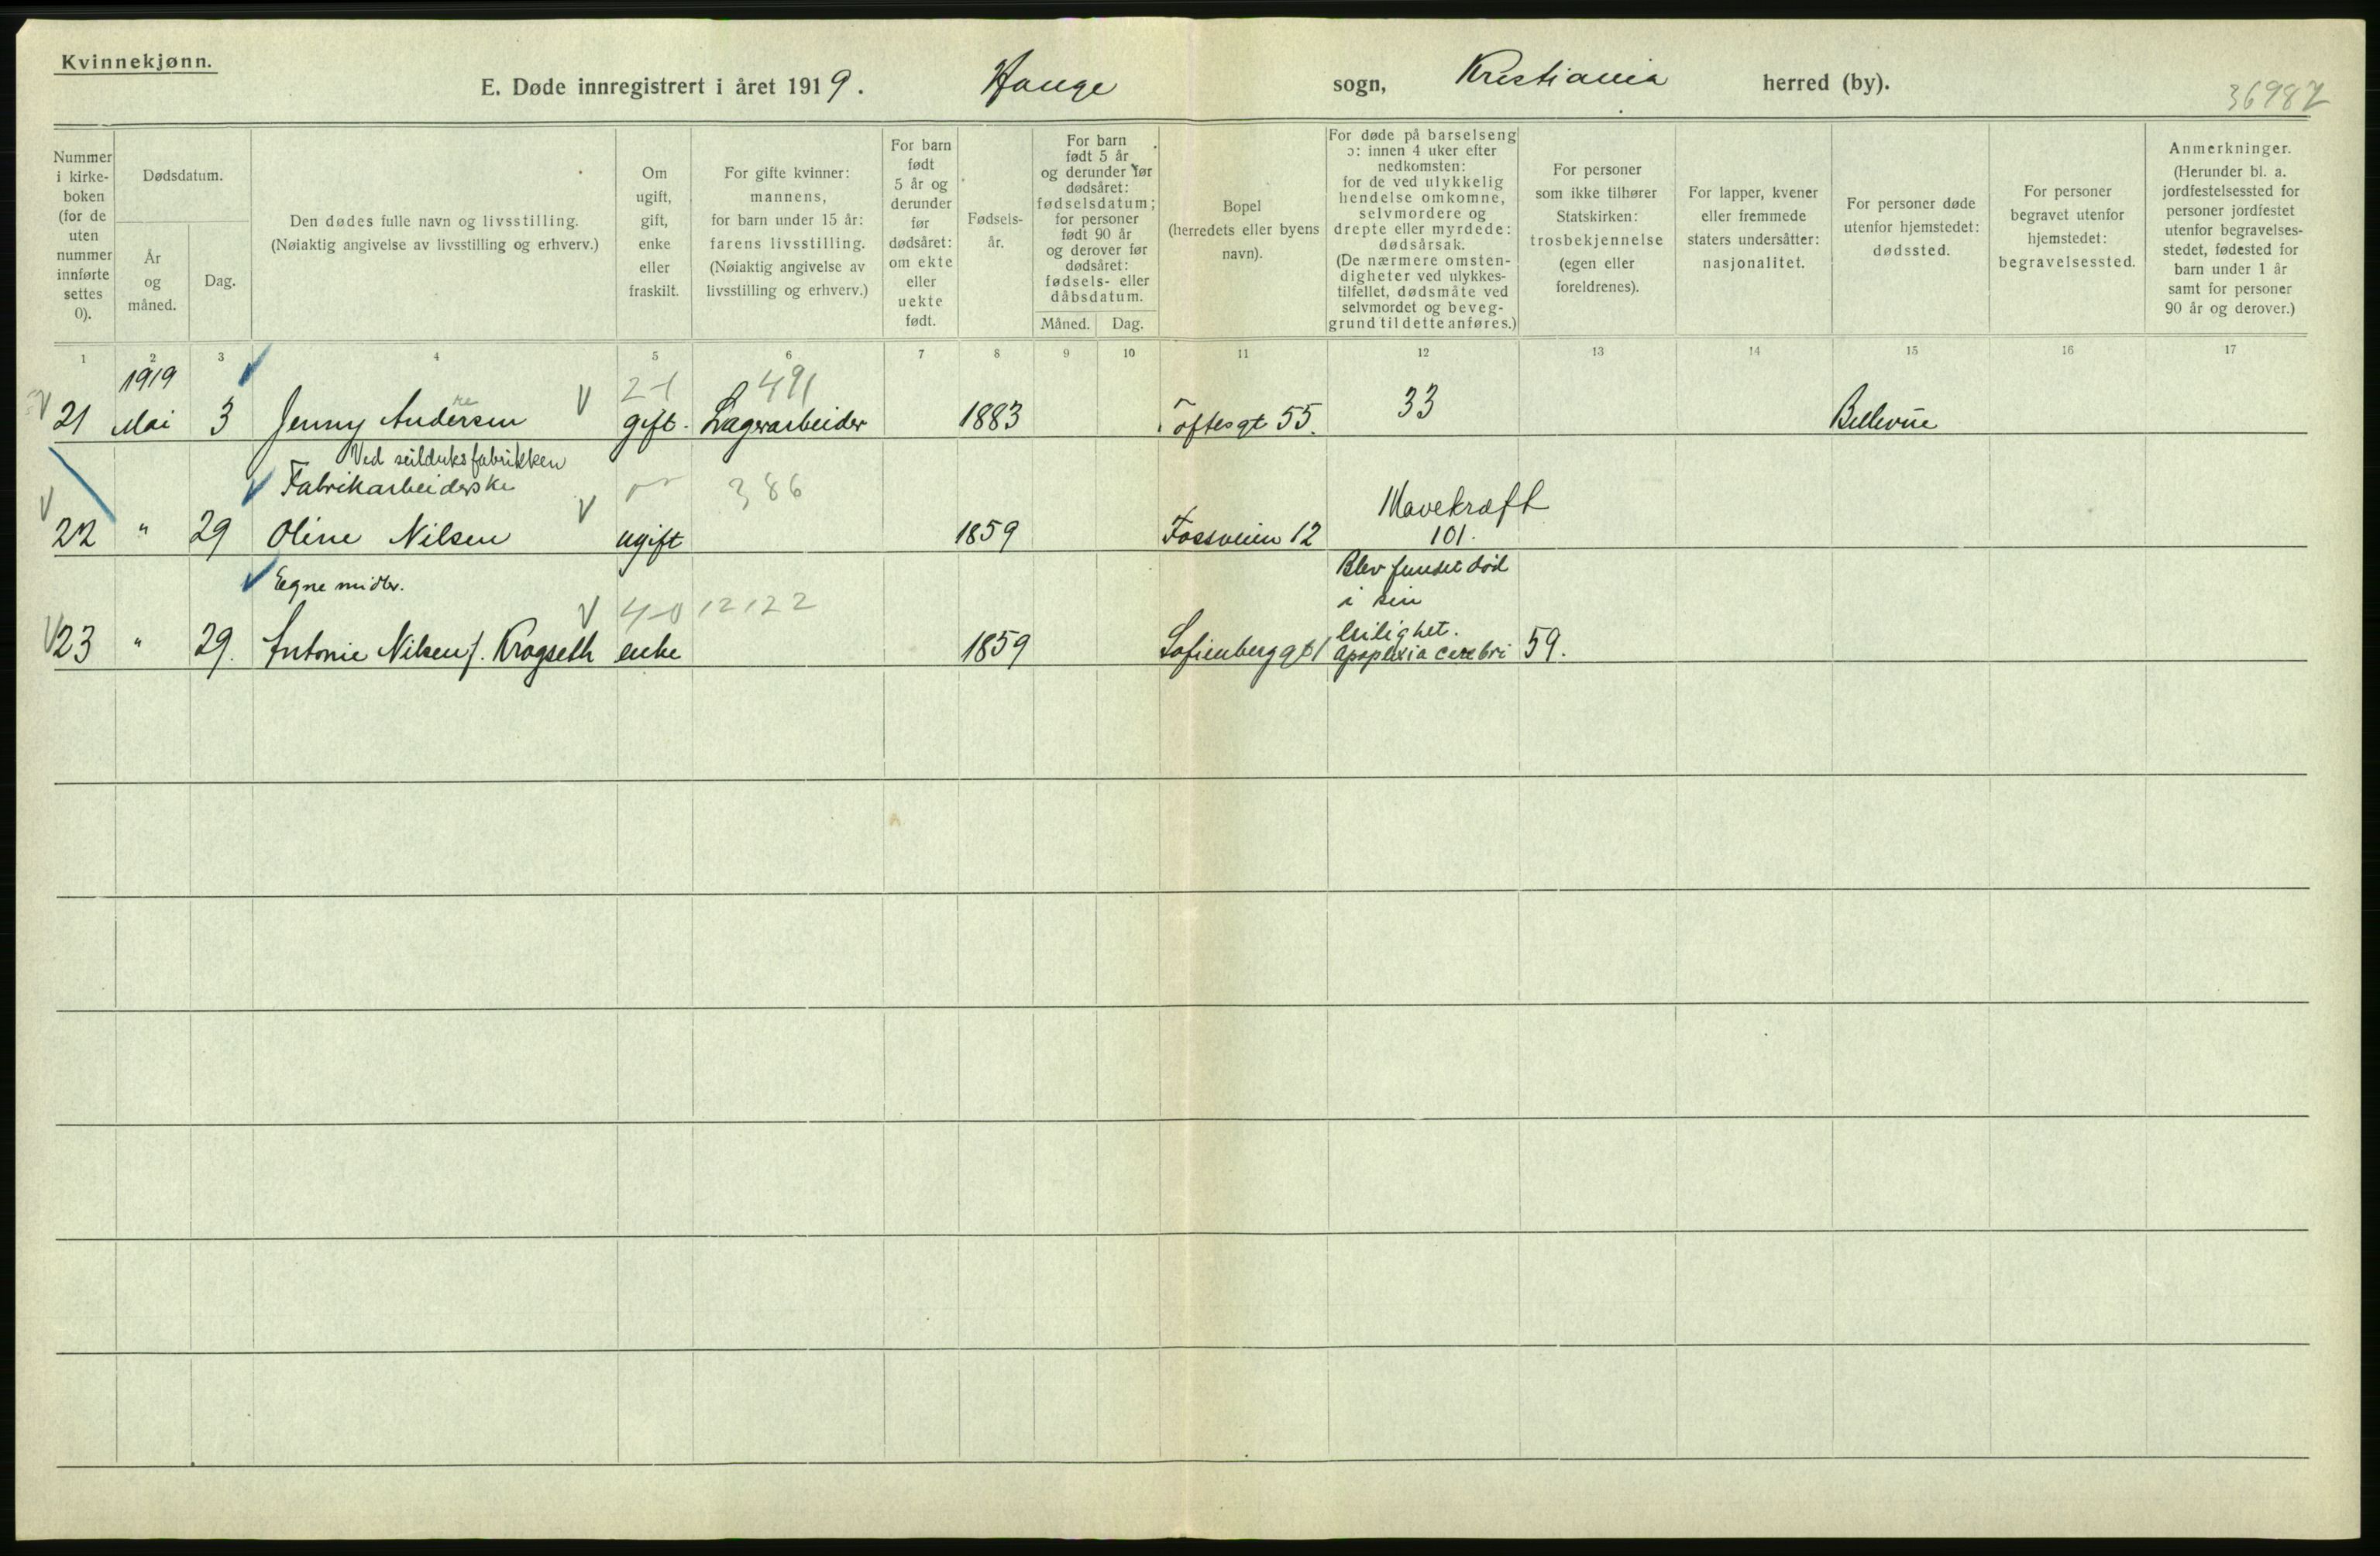 Kvinnekjønn.
E. Døde innregistrert i året 1919. Hauge sogn, Kristiania herred (by).
36982
Nummer i kirkeboken (for de uten nummer innførte settes 0).
Dødsdatum.
År og måned.
Dag.
Den dødes fulle navn og livsstilling.
(Nøiaktig angivelse av livsstilling og erhverv.)
Om ugift, gift, enke eller fraskilt.
For gifte kvinner: mannens, for barn under 15 år: farens livsstilling. (Nøiaktig angivelse av livsstilling og erhverv.)
For barn født 5 år og derunder før dødsåret: om ekte eller uekte født.
Fødsels-år.
For barn født 5 år og derunder før dødsåret: fødselsdatum; for personer født 90 år og derover før dødsåret: fødsels- eller dåbsdatum.
Måned. Dag.
Bopel (herredets eller byens navn).
For døde på barselseng ɔ: innen 4 uker efter nedkomsten: for de ved ulykkelig hendelse omkomne, selvmordere og drepte eller myrdede: dødsårsak. (De nærmere omstendigheter ved ulykkestilfellet, dødsmåte ved selvmordet og beveggrund til dette anføres.)
For personer som ikke tilhører Statskirken: trosbekjennelse (egen eller foreldrenes).
For lapper, kvener eller fremmede staters undersåtter: nasjonalitet.
For personer døde utenfor hjemstedet: dødssted.
For personer begravet utenfor hjemstedet: begravelsessted.
Anmerkninger. (Herunder bl. a. jordfestelsessted for personer jordfestet utenfor begravelsesstedet, fødested for barn under 1 år samt for personer 90 år og derover.)
1 2 3 4 5 6 7 8 9 10 11 12 13 14 15 16 17
1919
2-1 491
21 Mai 3 Jenny Andersen gift. Lagerarbeider 1883 Toftesgt 55. 33 Bellevue
Ved seilduksfabrikken
Fabrikarbeiderske 386
22 " 29 Oline Nilsen ugift 1859 Fossveien 12 Mavekræft 101.
Egne midler. 4-0 12122
23 " 29. Antonie Nilsen f. Krogseth enke 1859 Sofienberggt 1 Blev funnet død i sin leilighet. Apoplexia cerebri 59.